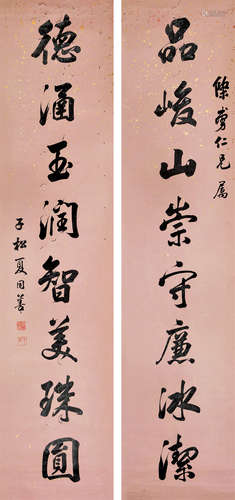 品峻山崇守廉冰潔
德涵玉润智美珠圓
仁兄属
子松夏同善